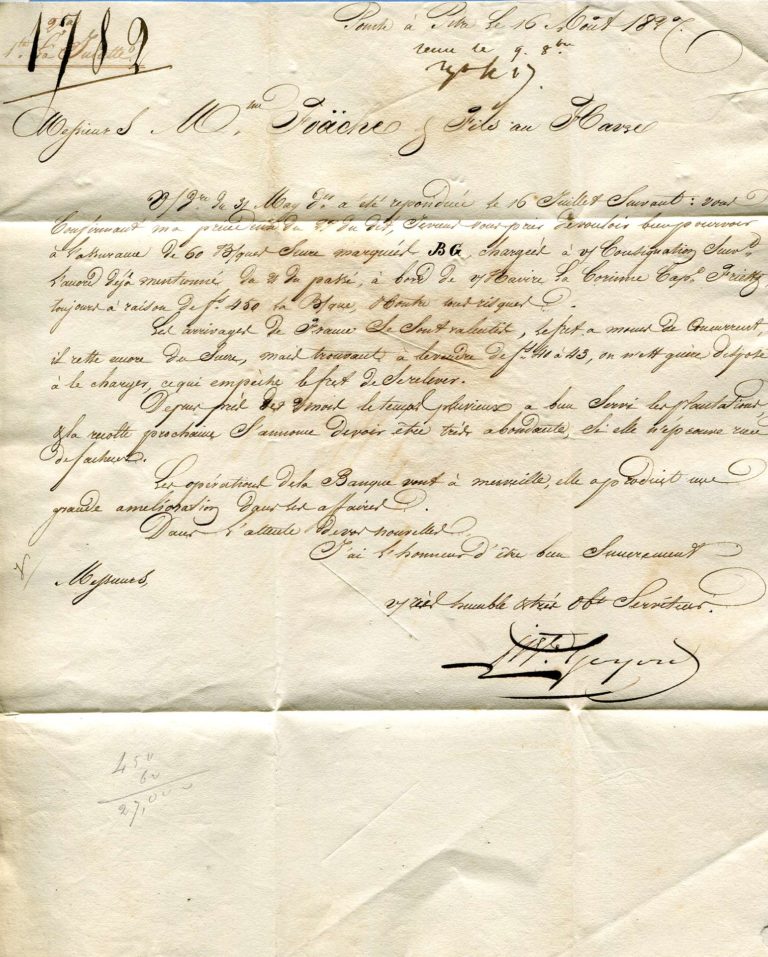 1782
2da
1re Pa Juliette
Pointe à Pitre Le 16 Août 1827.
reçue le 9. 8bre
Messieurs Mtin Foäche & Fils au Havre
V/ Dre du 31 May Dr a été repondüe le 16 Juillet Suivant: vous
Confirmant ma precedente du du dit, Je viens vous prier de vouloir bien pourvoir
à l'assurance de 60 Bques Sucre marquées BG chargées à v/ Consignation Suivt
L'avord déjà mentionné du 21 du passé, à bord de v/ Navire la Corinne Capn
toujours à raison de fs 450 la Bque, Contre tous risques.
Les arrivages de France Se Sont ralentis, le fret a moins de Concurrent,
il reste encore du Sucre, mais trouvant à le vendre de fs 40 à 43, on n'est guère disposé
à le charger, ce qui empêche le fret de Se relever.
Depuis près des 2 mois le temps pluvieux a bien Servi les plantations,
& la recolte prochaine S'annonce devoir être très abondante, Si elle n'eprouve rien
de facheux.
Les opérations de la Banque vont à merveille, elle a produit une
grande amelioration dans les affaires.
Dans l'attente de vos nouvelles
J'ai l'honneur d'être bien Sincerement
Messieurs,
v/ très humble & très Obt Serviteur.
450
60
27,000